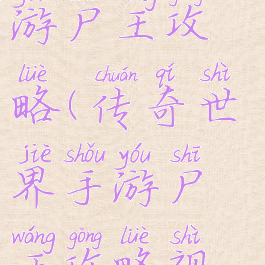 游尸王攻
lüè chuán qí shì
略(传奇世
jiè shǒu yóu shī
界手游尸
wáng gōng lüè shì
王攻略视